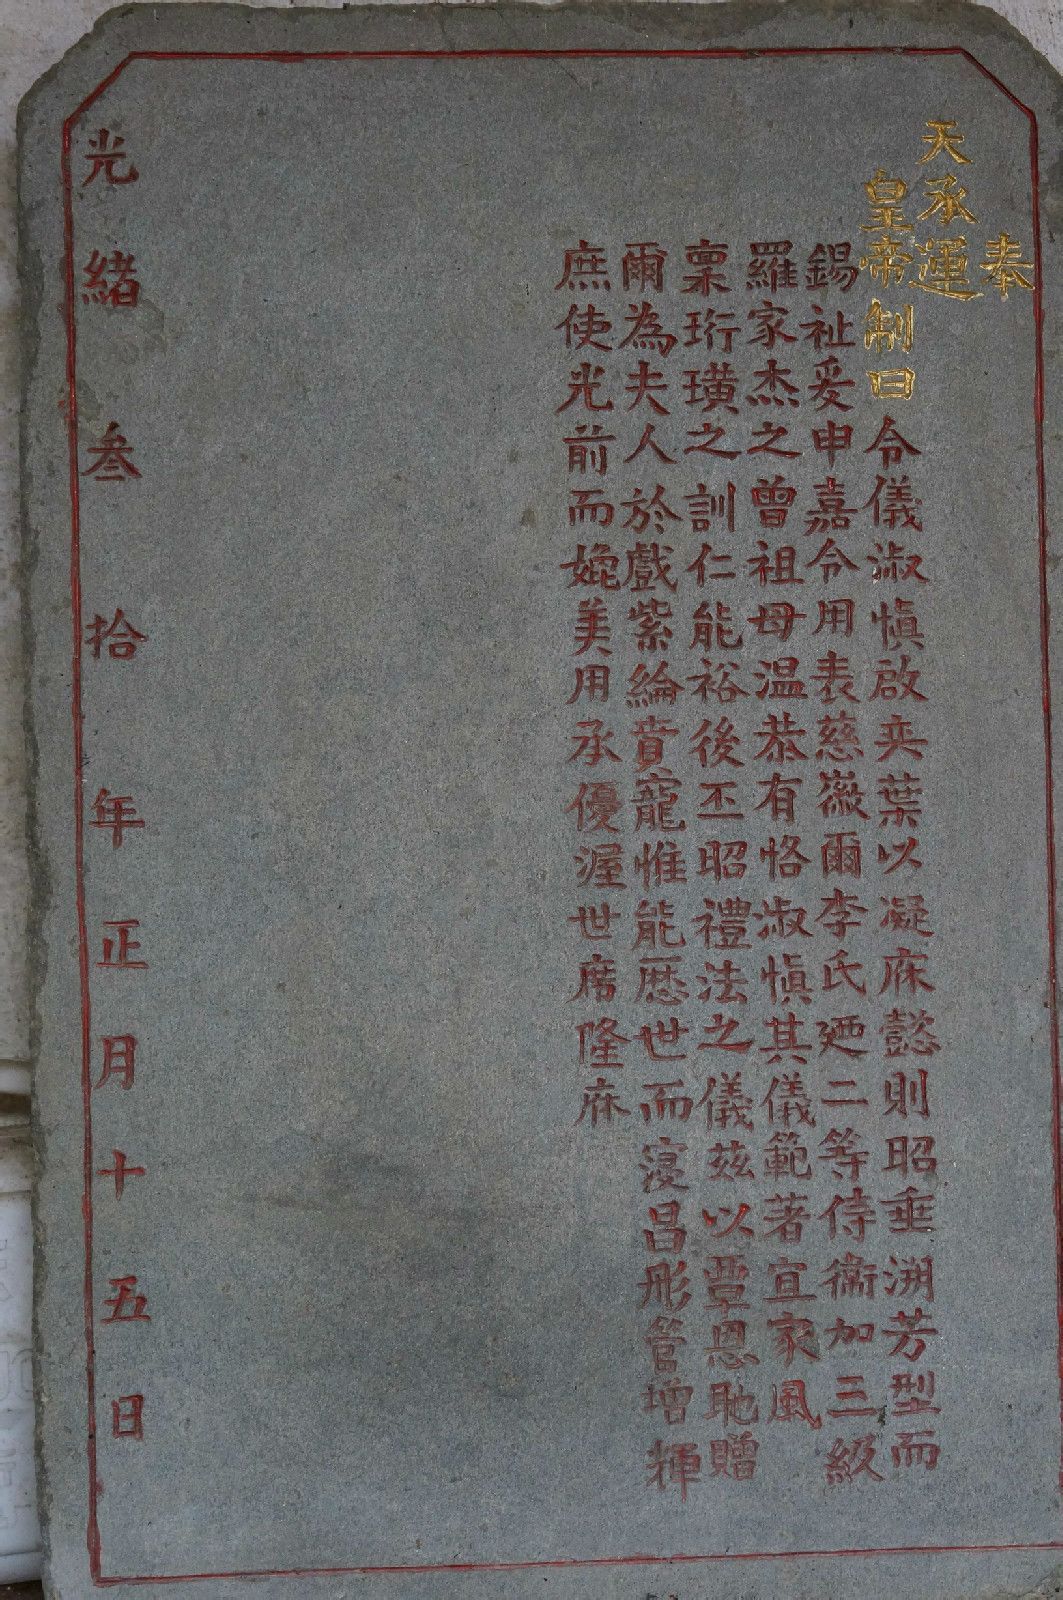 奉
天承運
皇帝制曰令儀淑慎啟奕葉以凝庥懿則昭垂溯芳型而
錫祉爰申嘉令用表慈徽爾李氏廼二等侍衞加三級
羅家杰之曾祖母温恭有恪淑慎其儀範著宜家風
稟珩璜之訓仁能裕後丕昭禮法之儀茲以覃恩馳贈
爾為夫人於戲紫綸賁寵惟能歷世而寖昌彤管增輝
庶使光前而媲美用承優渥世席隆庥
光緒叁拾年正月十五日